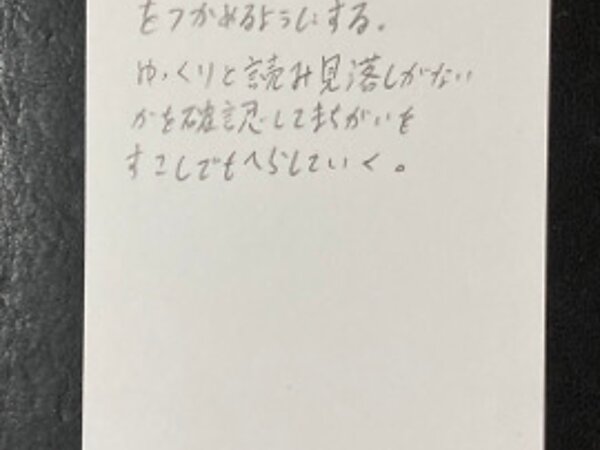 をつかめるようにする。
ゆっくりと読み見落しがない
かを確認してまちがいを
すこしでもへらしていく。